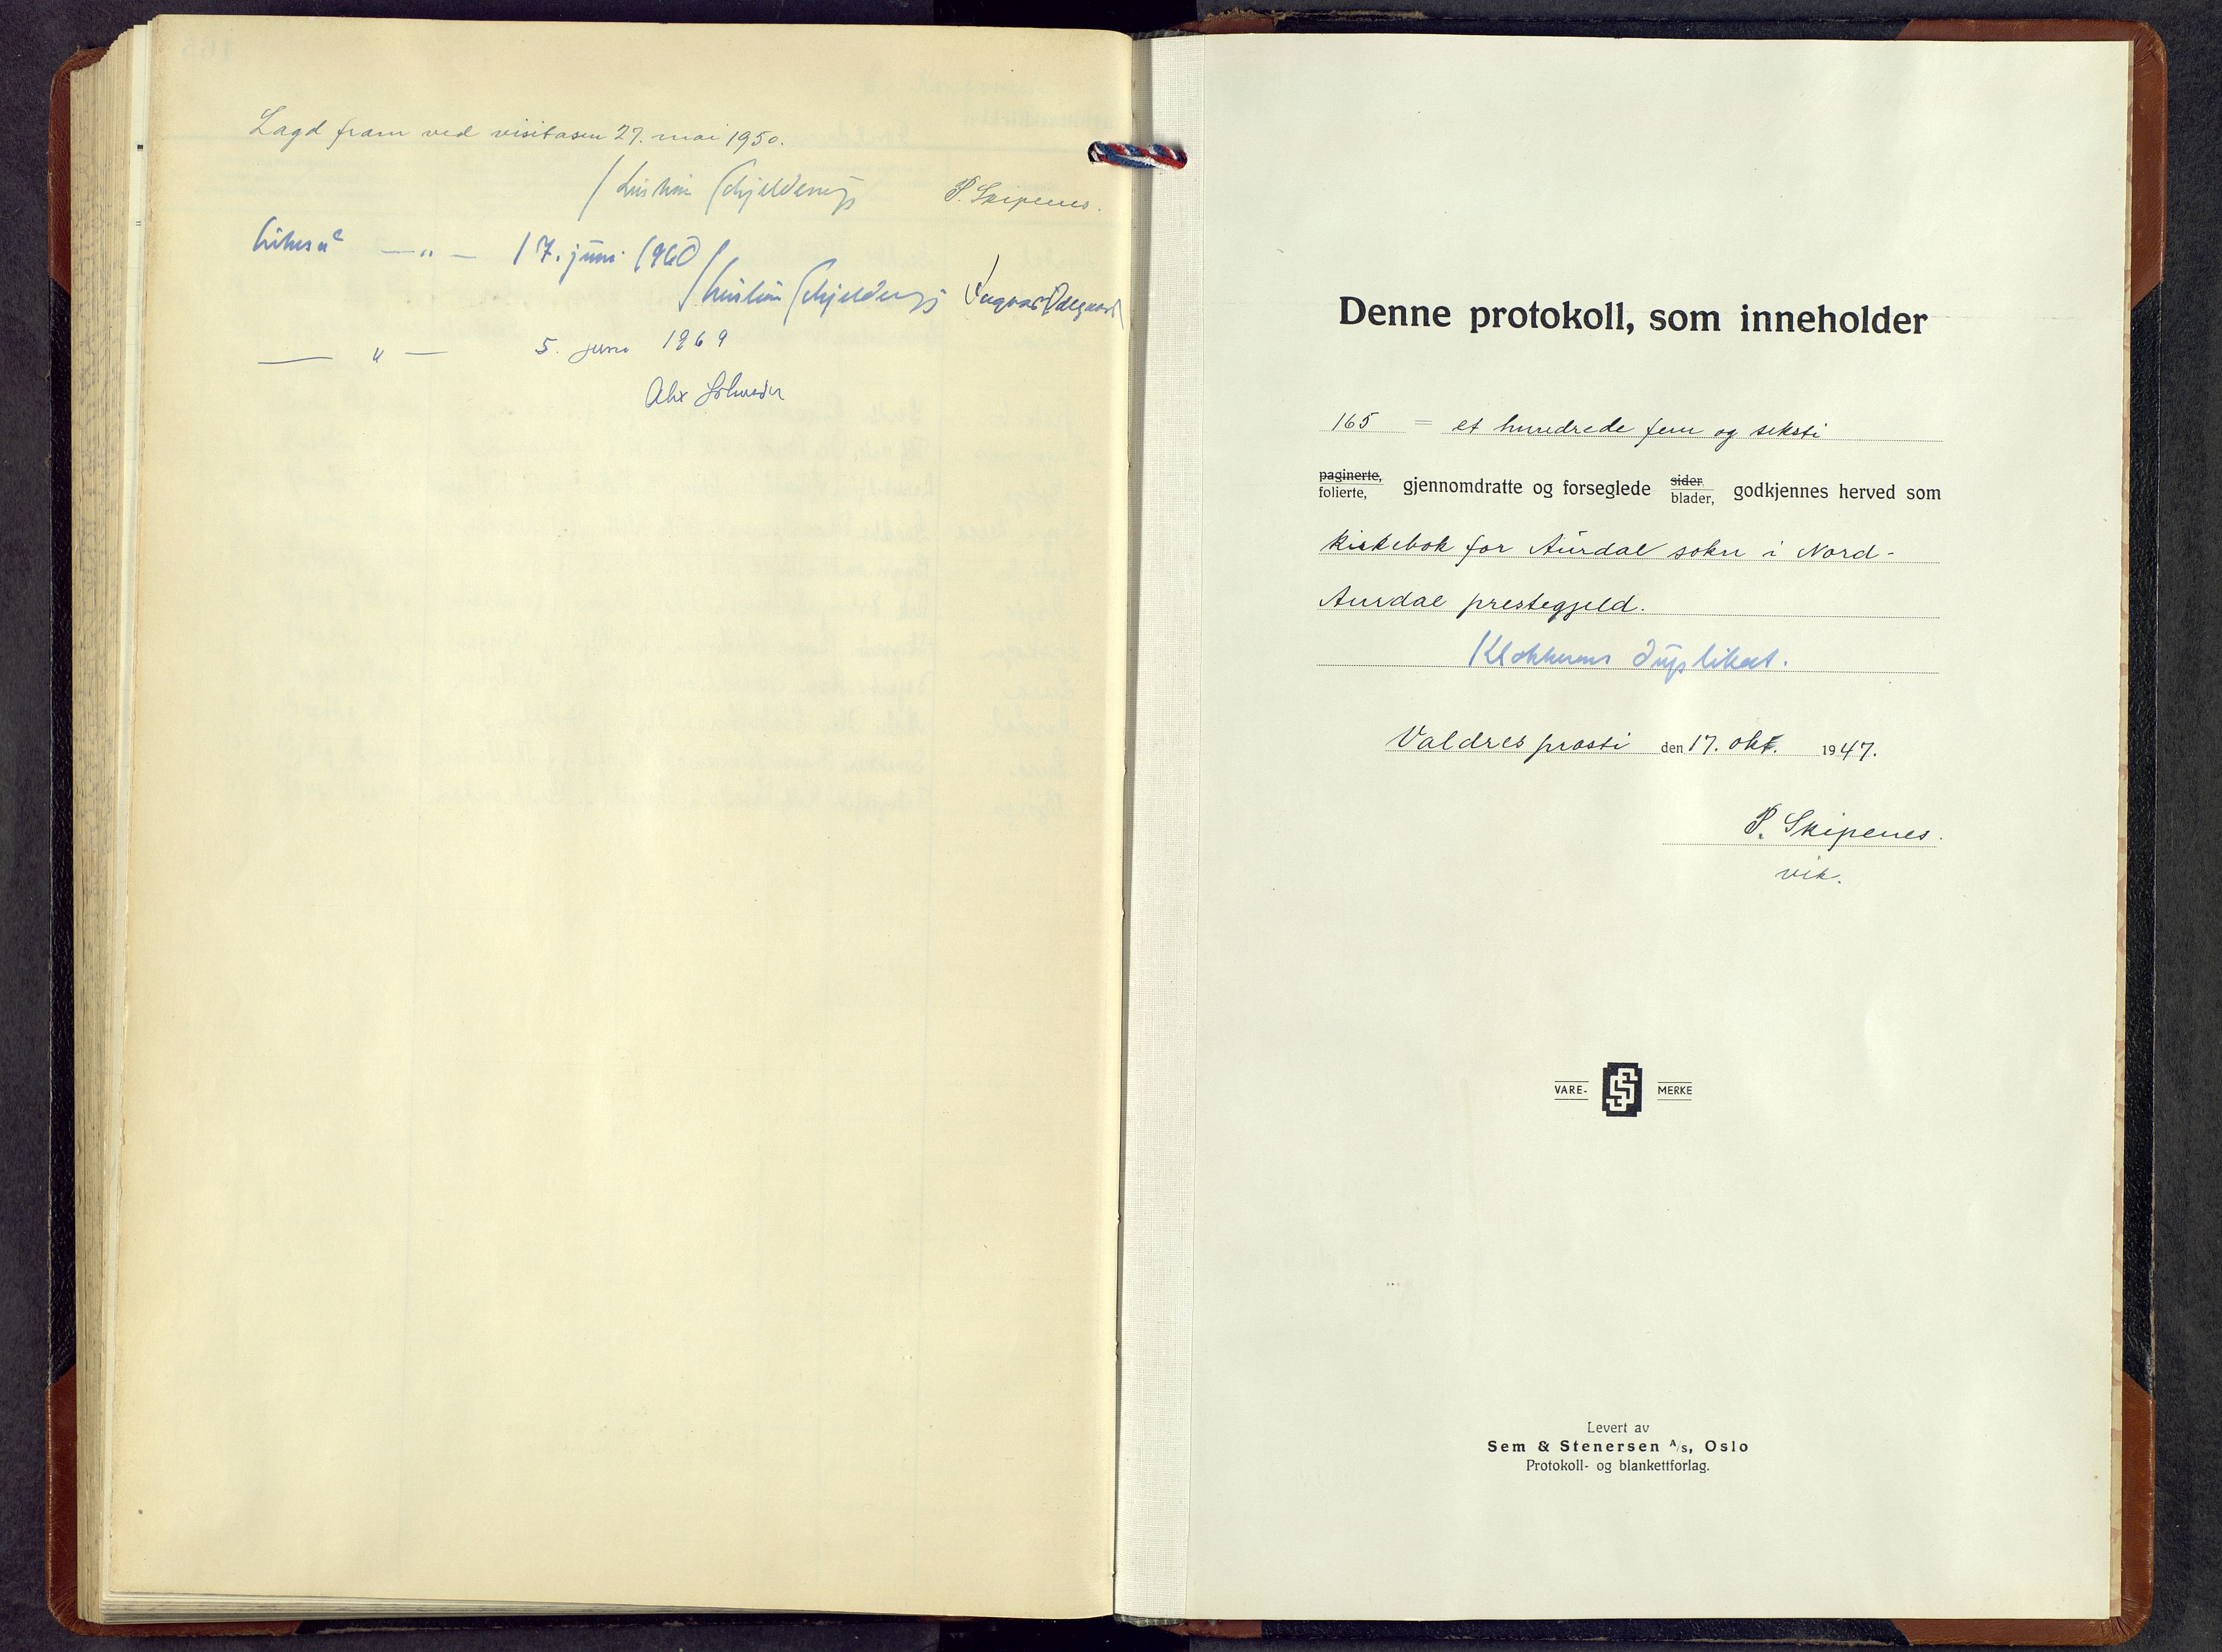 Lagd fram ved visitasen 27. mai 1950.
Kristian Schjelderup P. Skipenes.
Likeså — " — 17. juni 1960
Kristian Schjelderup Ingvar Ødegaard
— " — 5. juni 1969
Alex Johnson
Denne protokoll, som inneholder
165 = et hundrede fem og seksti
paginerte, folierte, gjennomdratte og forseglede sider, blader, godkjennes herved som
kirkebok for Aurdal sokn i Nord-
Aurdal prestegjeld.
Klokkerens duplikat.
Valdres prosti den 17. okt. 1947.
P. Skipenes.
vik.
VARE- SS MERKE
Levert av
Sem & Stenersen A/s, Oslo
Protokoll- og blankettforlag.